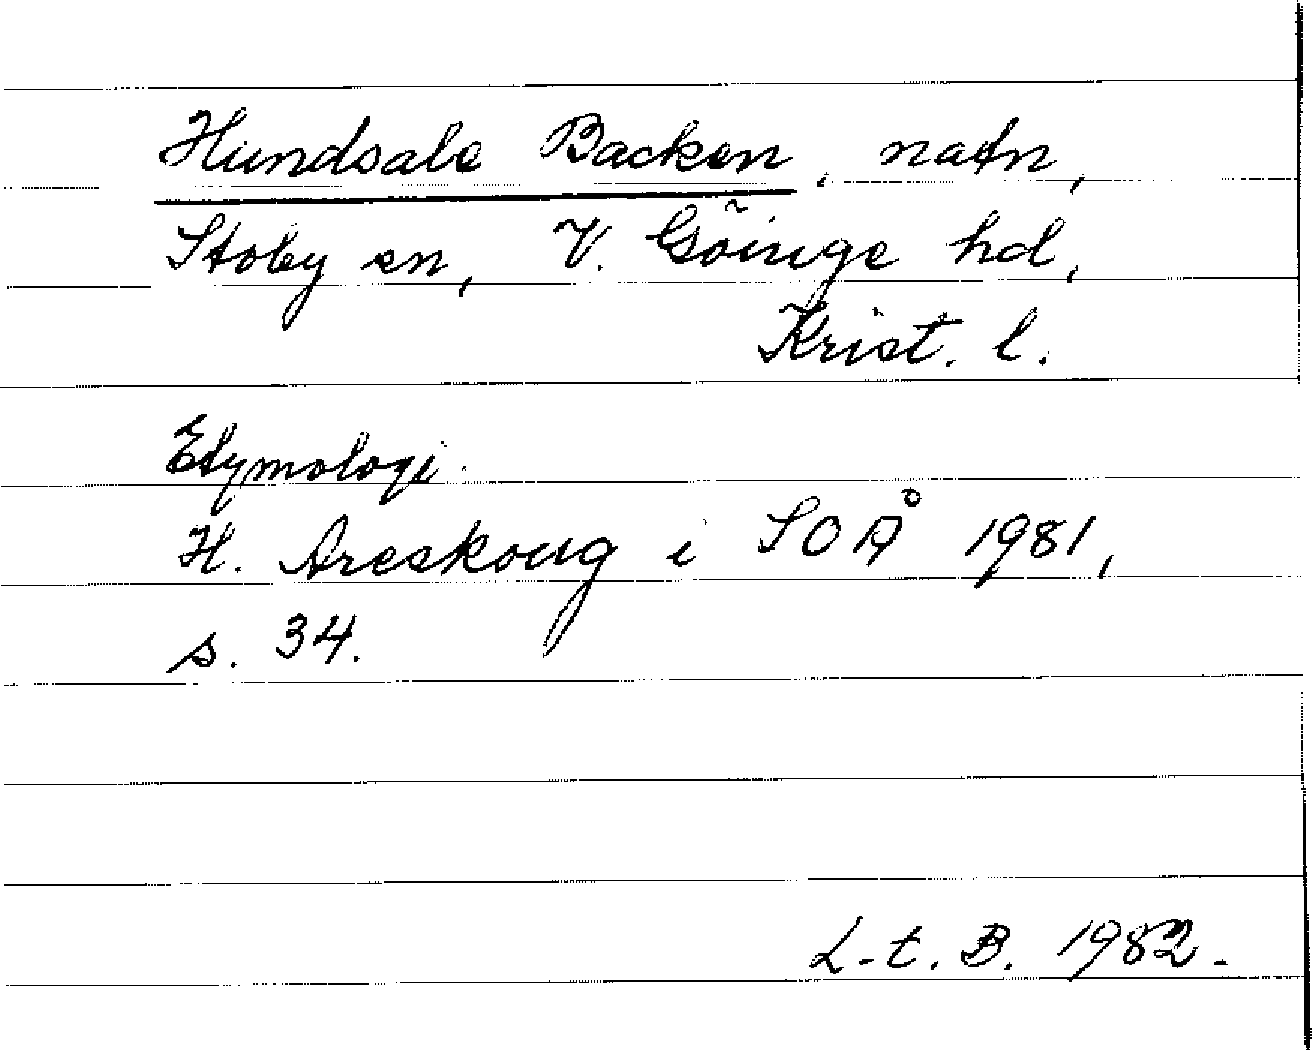 Hundsale Backen, natn,
Stoby sn, V. Göinge hd,
Krist. l.
Etymologi.
H. Areskoug i SOÅ 1981,
s. 34.
L-t. B. 1982.